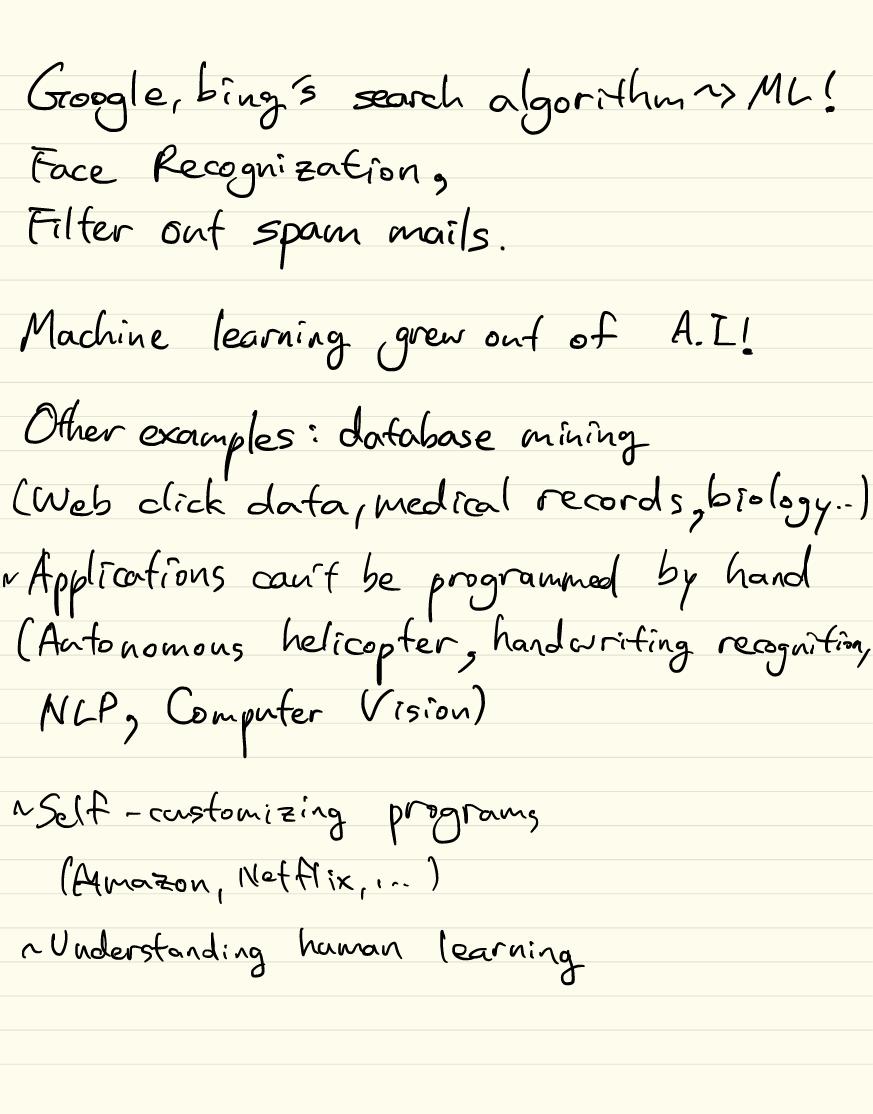 Google, bing's search algorithm ~> ML!
Face Recognization,
Filter out spam mails.
Machine learning grew out of A.I!
Other examples: database mining
(Web click data, medical records, biology..)
~ Applications can't be programmed by hand
(Autonomous helicopter, handwriting recognition,
NLP, Computer Vision)
~ Self-customizing programs
(Amazon, Netflix, ...)
~ Understanding human learning